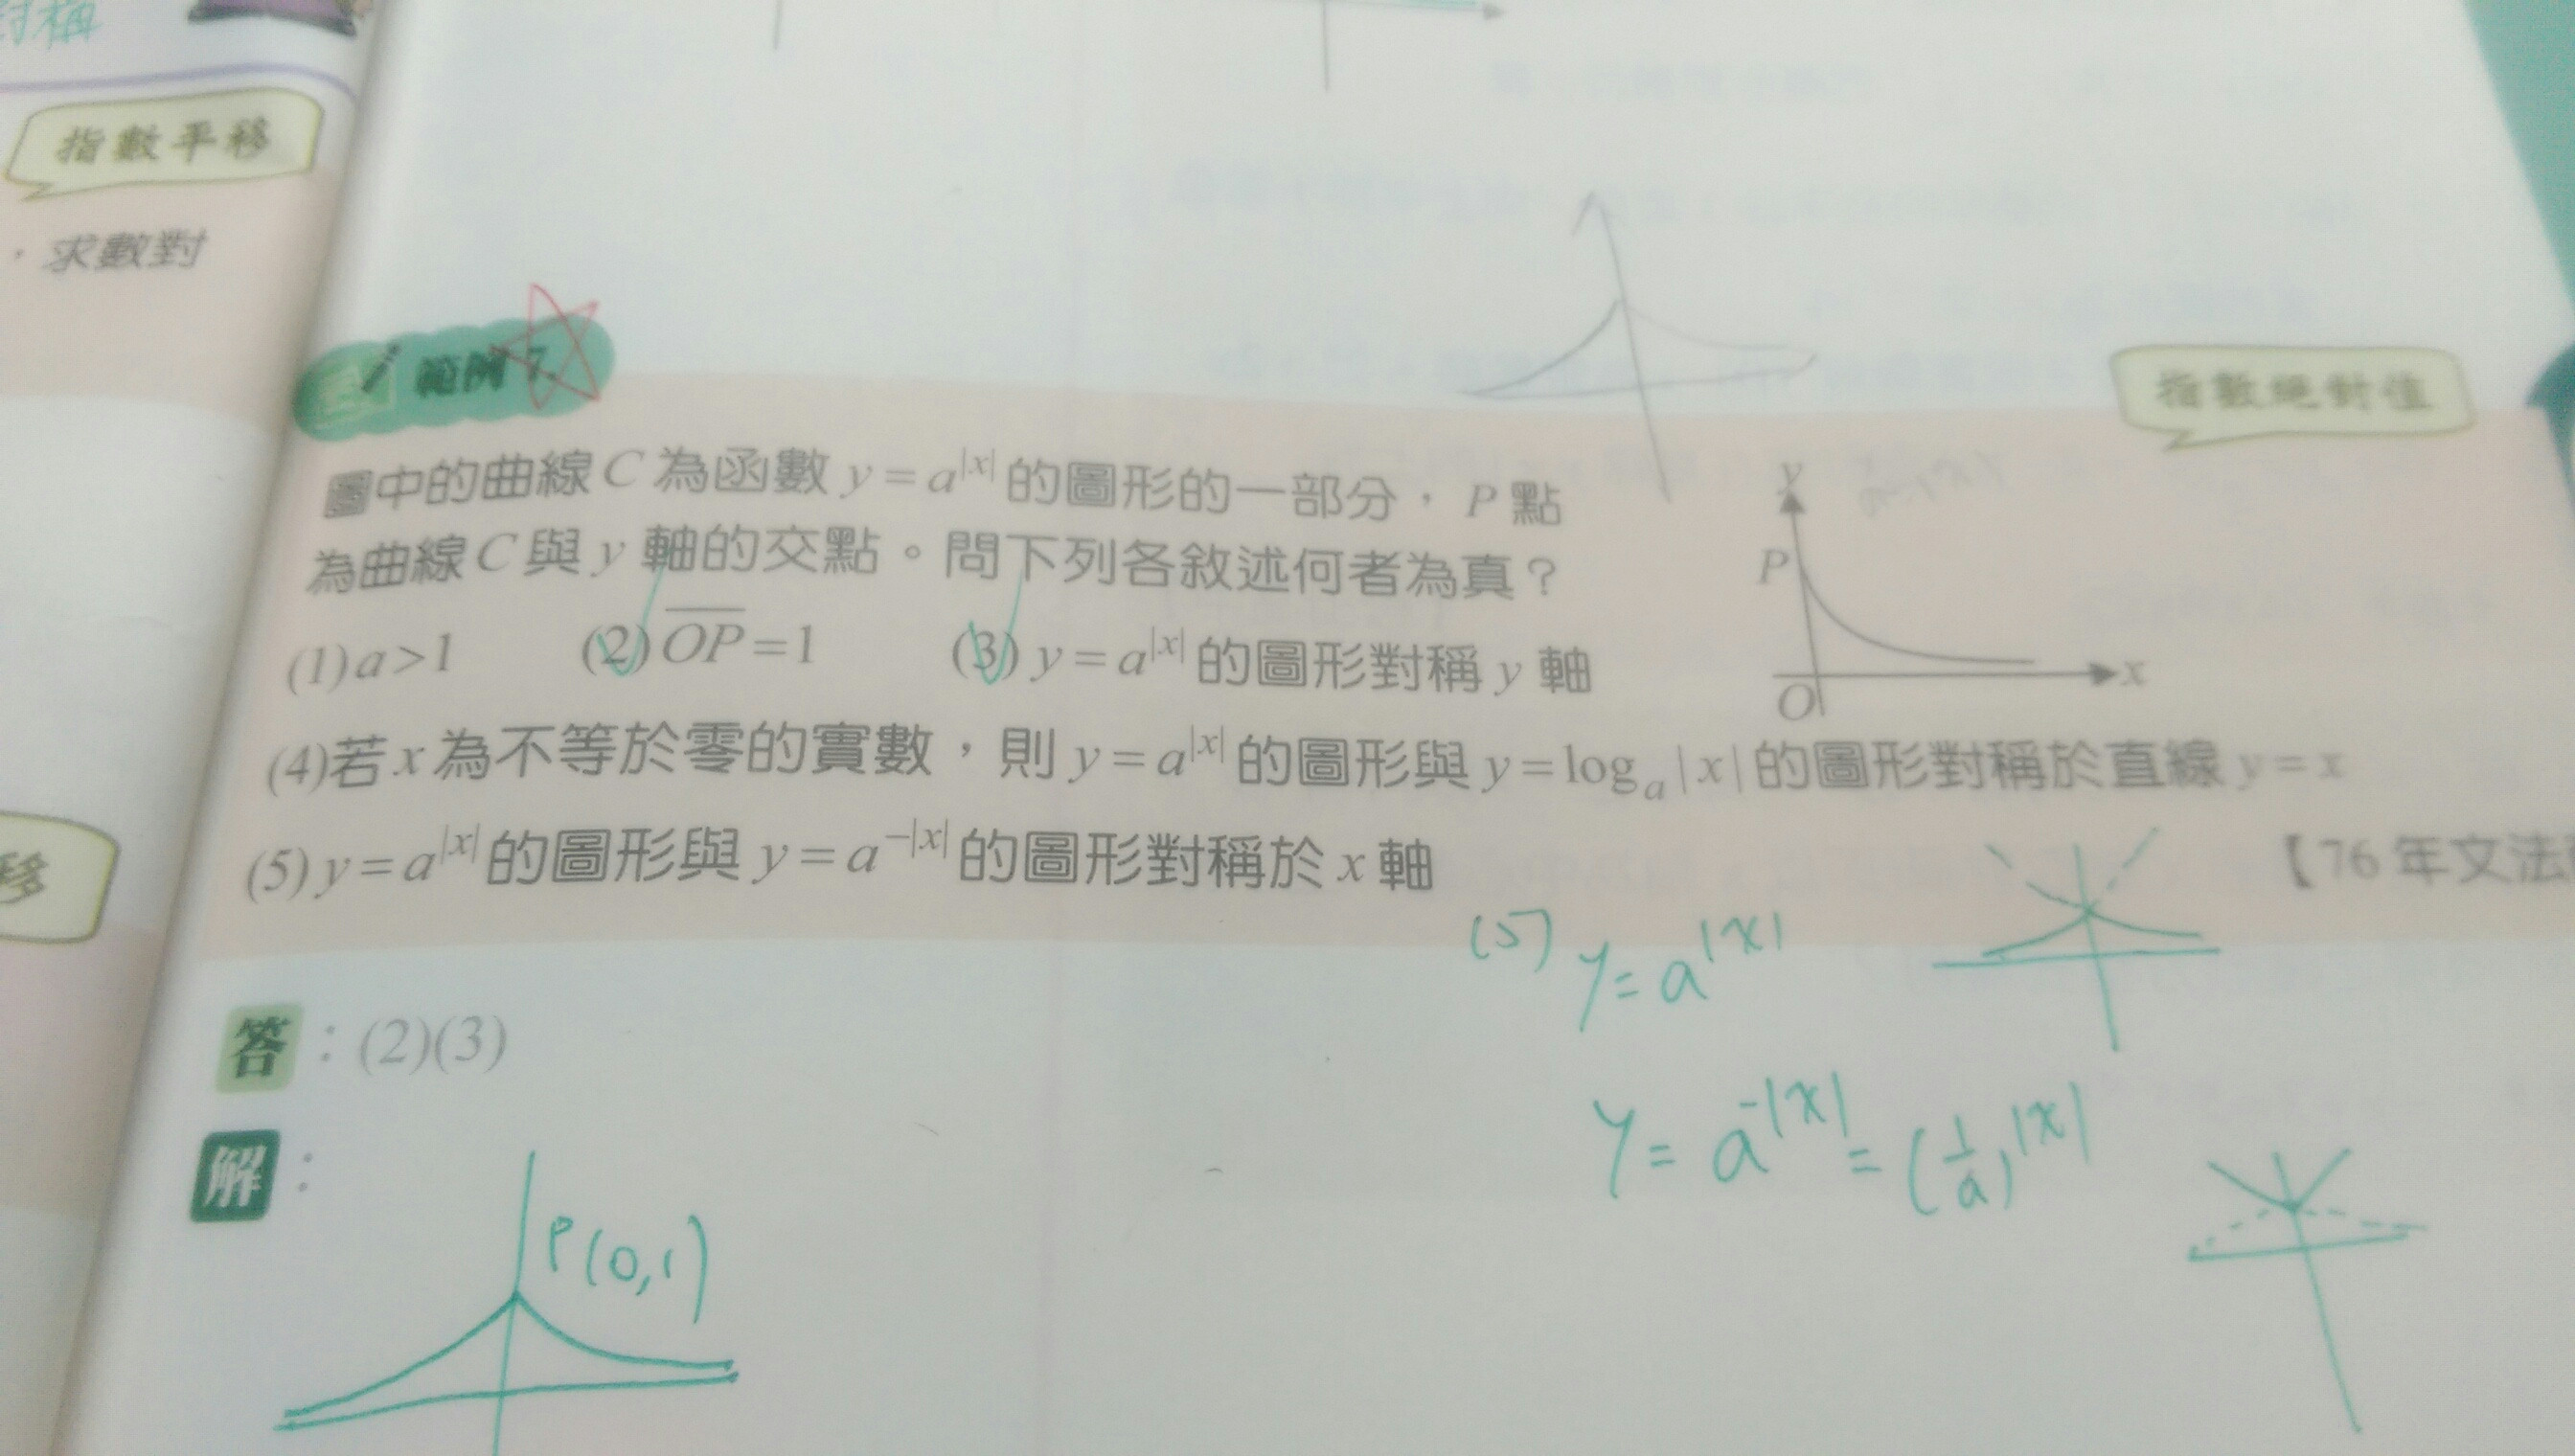 對稱
指數平移
，求數對
移
範例 7
指數絕對值
圖中的曲線 C 為函數 y = a^|x| 的圖形的一部分，P 點
為曲線 C 與 y 軸的交點。問下列各敘述何者為真？
y
P
O
x
(1) a > 1 (2) \overline{OP} = 1 (3) y = a^|x| 的圖形對稱 y 軸
(4)若 x 為不等於零的實數，則 y = a^|x| 的圖形與 y = log_a |x| 的圖形對稱於直線 y = x
(5) y = a^|x| 的圖形與 y = a^-|x| 的圖形對稱於 x 軸
【76 年文法
(5) y = a^|x|
y = a^-|x| = (1/a)^|x|
答：(2)(3)
解：
P(0,1)